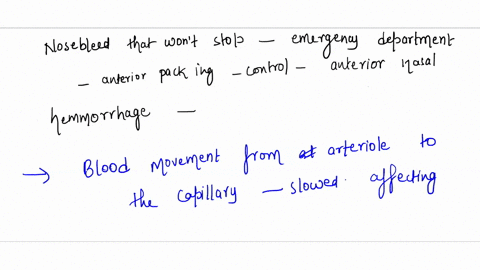 Nosebleed that won't stop — emergency department
- anterior packing - control - anterior nasal
hemmorrhage —
→ Blood movement from arteriole to
the capillary — slowed affecting